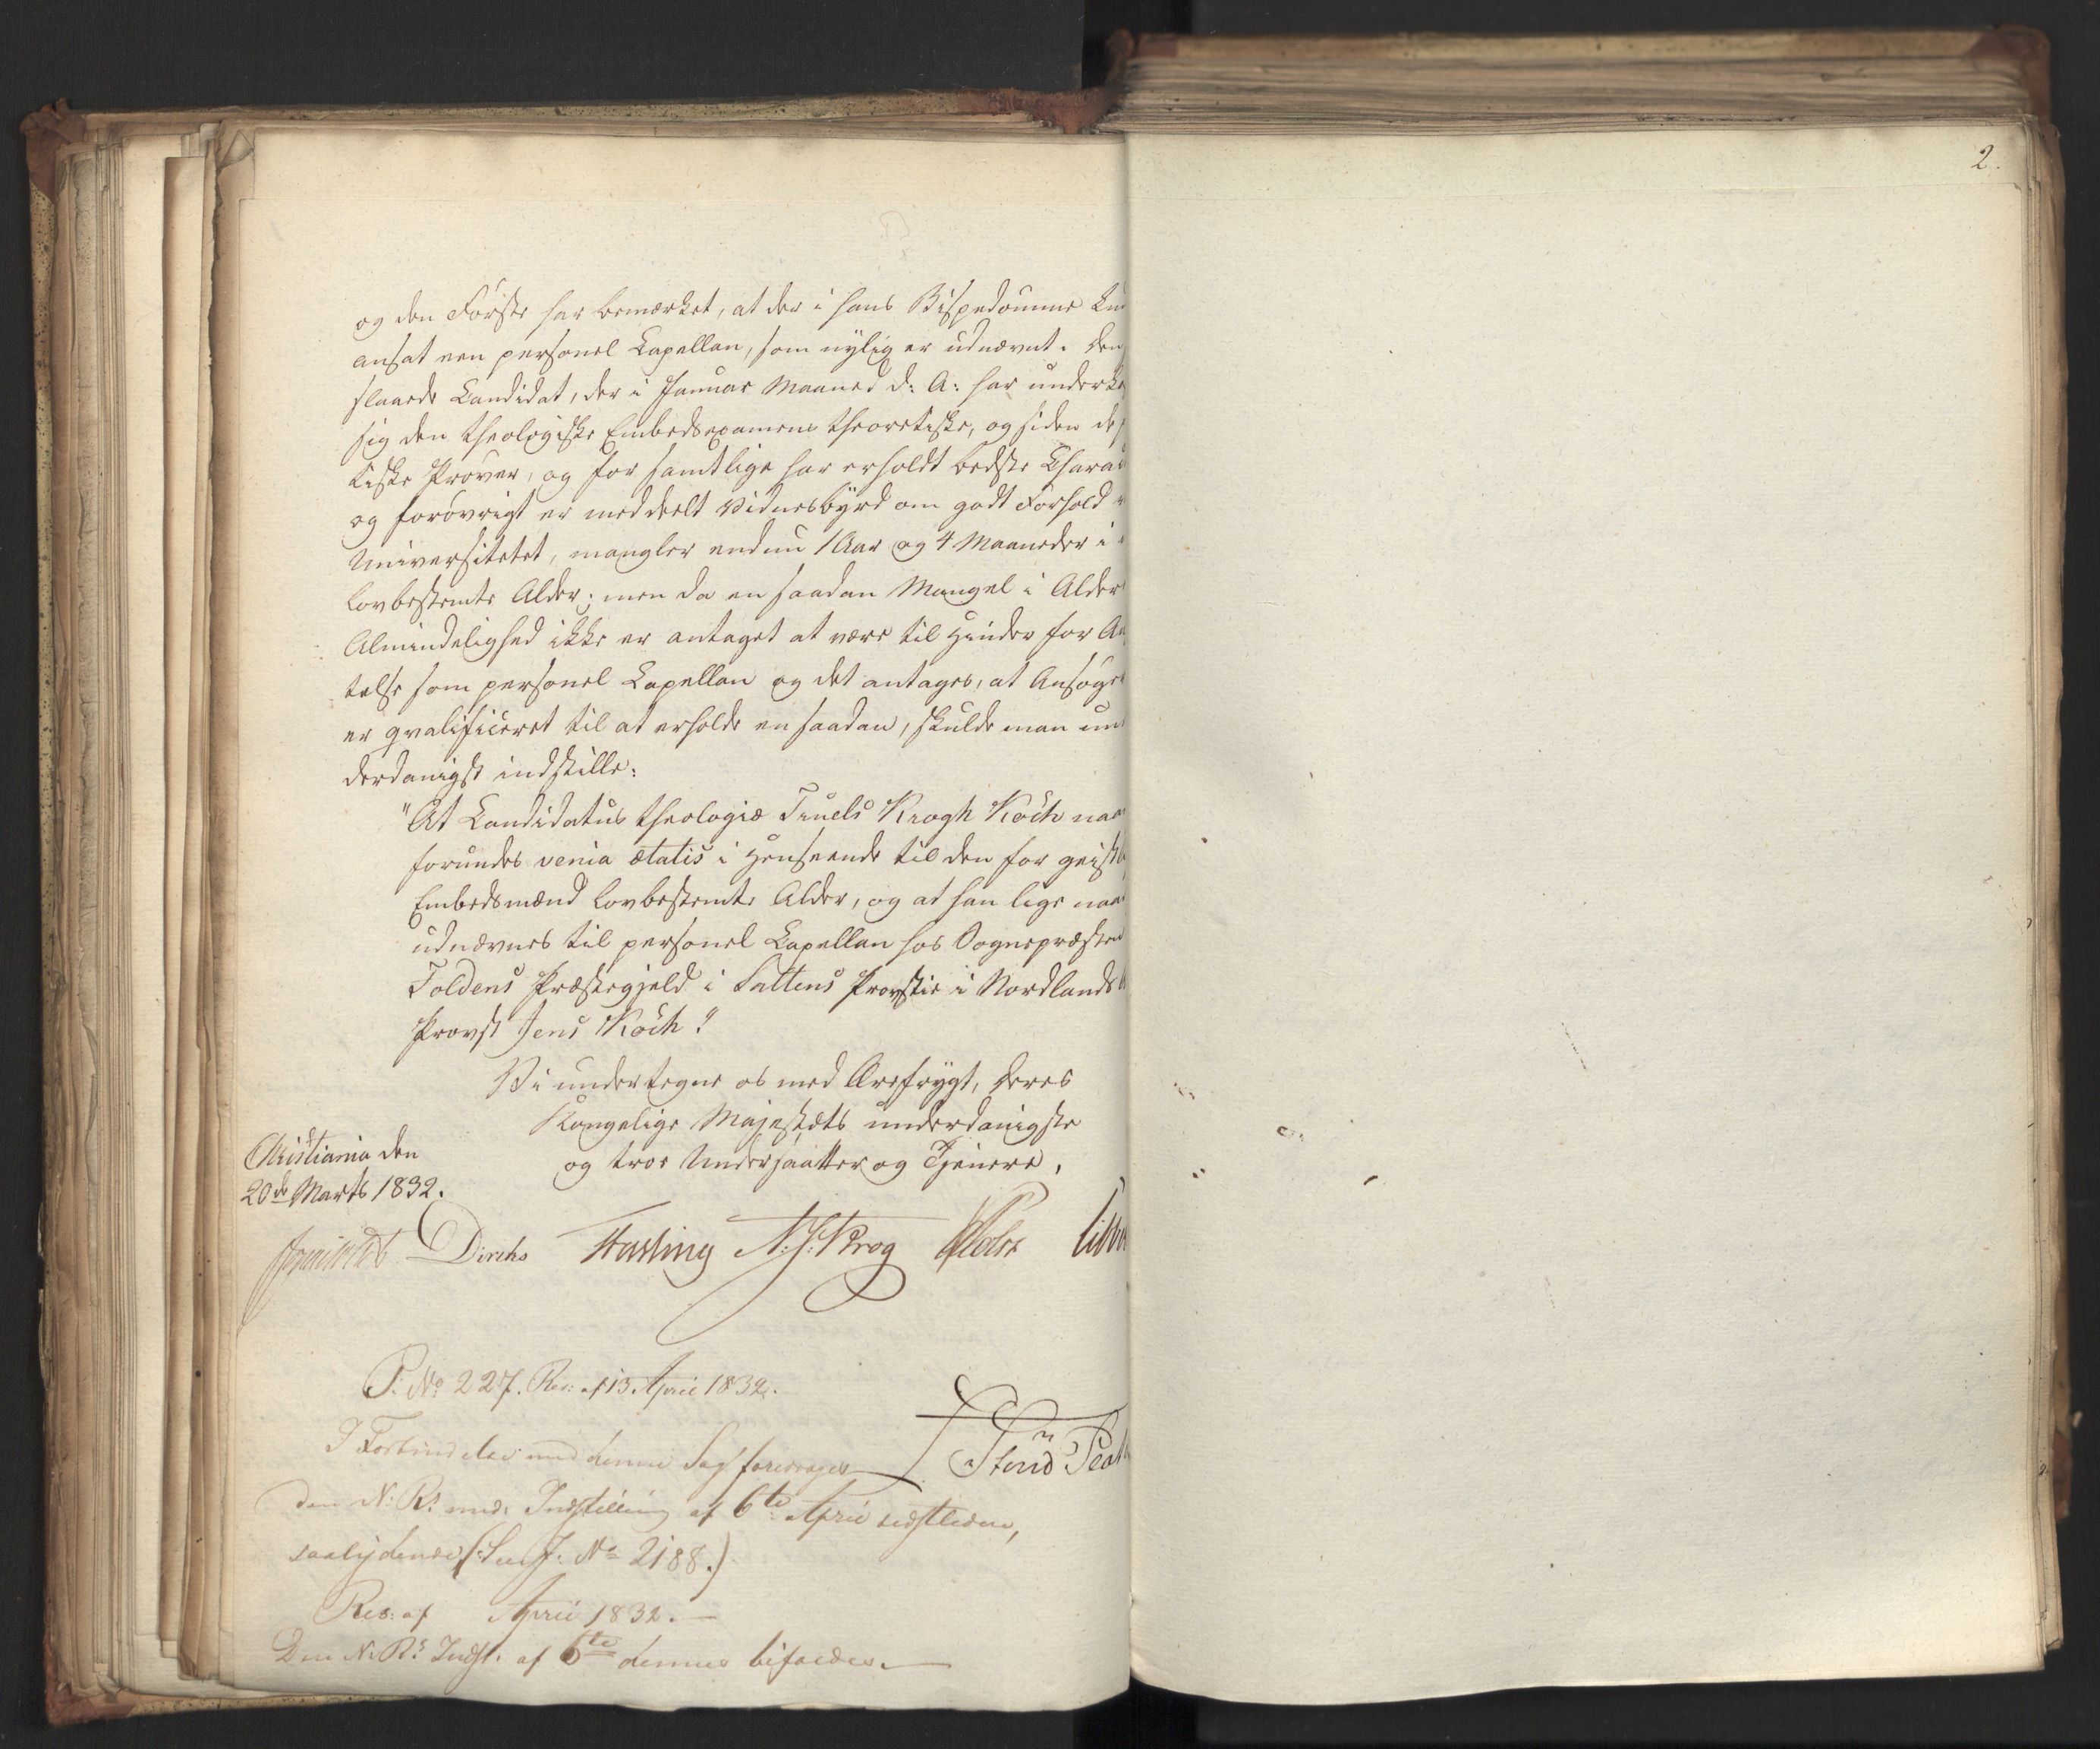 2.
og den Første har bemærket, at der i hans Bispedømme kun
ansat een personel Capellan, som nylig er udnævnt. Den
slaaede Candidat, der i Januar Maaned d: A: har underka
sig den theologiske Embedsexamens theoretiske, og siden de p
tiske Prøver, og for samtlige har erholdt bedste Charac
og forøvrigt er meddeelt Vidnesbyrd om godt Forhold
Universitetet, mangler endnu 1 Aar og 4 Maaneder i
lovbestemte Alder; men da en saadan Mangel i Alder
Almindelighed ikke er antaget at være til Hinder for An
telse som personel Capellan og det antages, at Ansøge
er qvalificeret til at erholde en saadan, skulde man un
derdanigst indstille:
"At Candidatus theologiæ Truels Krogh Köch naa
forundes venia ætatis i Henseende til den for geistl
Embedsmænd lovbestemte Alder, og at han lige naa
udnævnes til personel Capellan hos Sognepræsten
Foldens Præstegjeld i Saltens Provstie i Nordlands
Provst Jens Köch."
Vi undertegne os med Ærefrygt, Deres
Kongelige Majestæts underdanigste
og troe Undersaatter og Tjenere,
Christiania den
20de Marts 1832.
Diriks Fasting N. J. Krog
P: No 227. Res: af 13 April 1832.
I Forbindelse med denne Sag foredrages
den N: Rs und: Indstilling af 6te April sidstleden,
saalydende (: See J: No 2188.)
Res: af April 1832. —
Den N. Rs Indst: af 6te dennes bifaldes. —